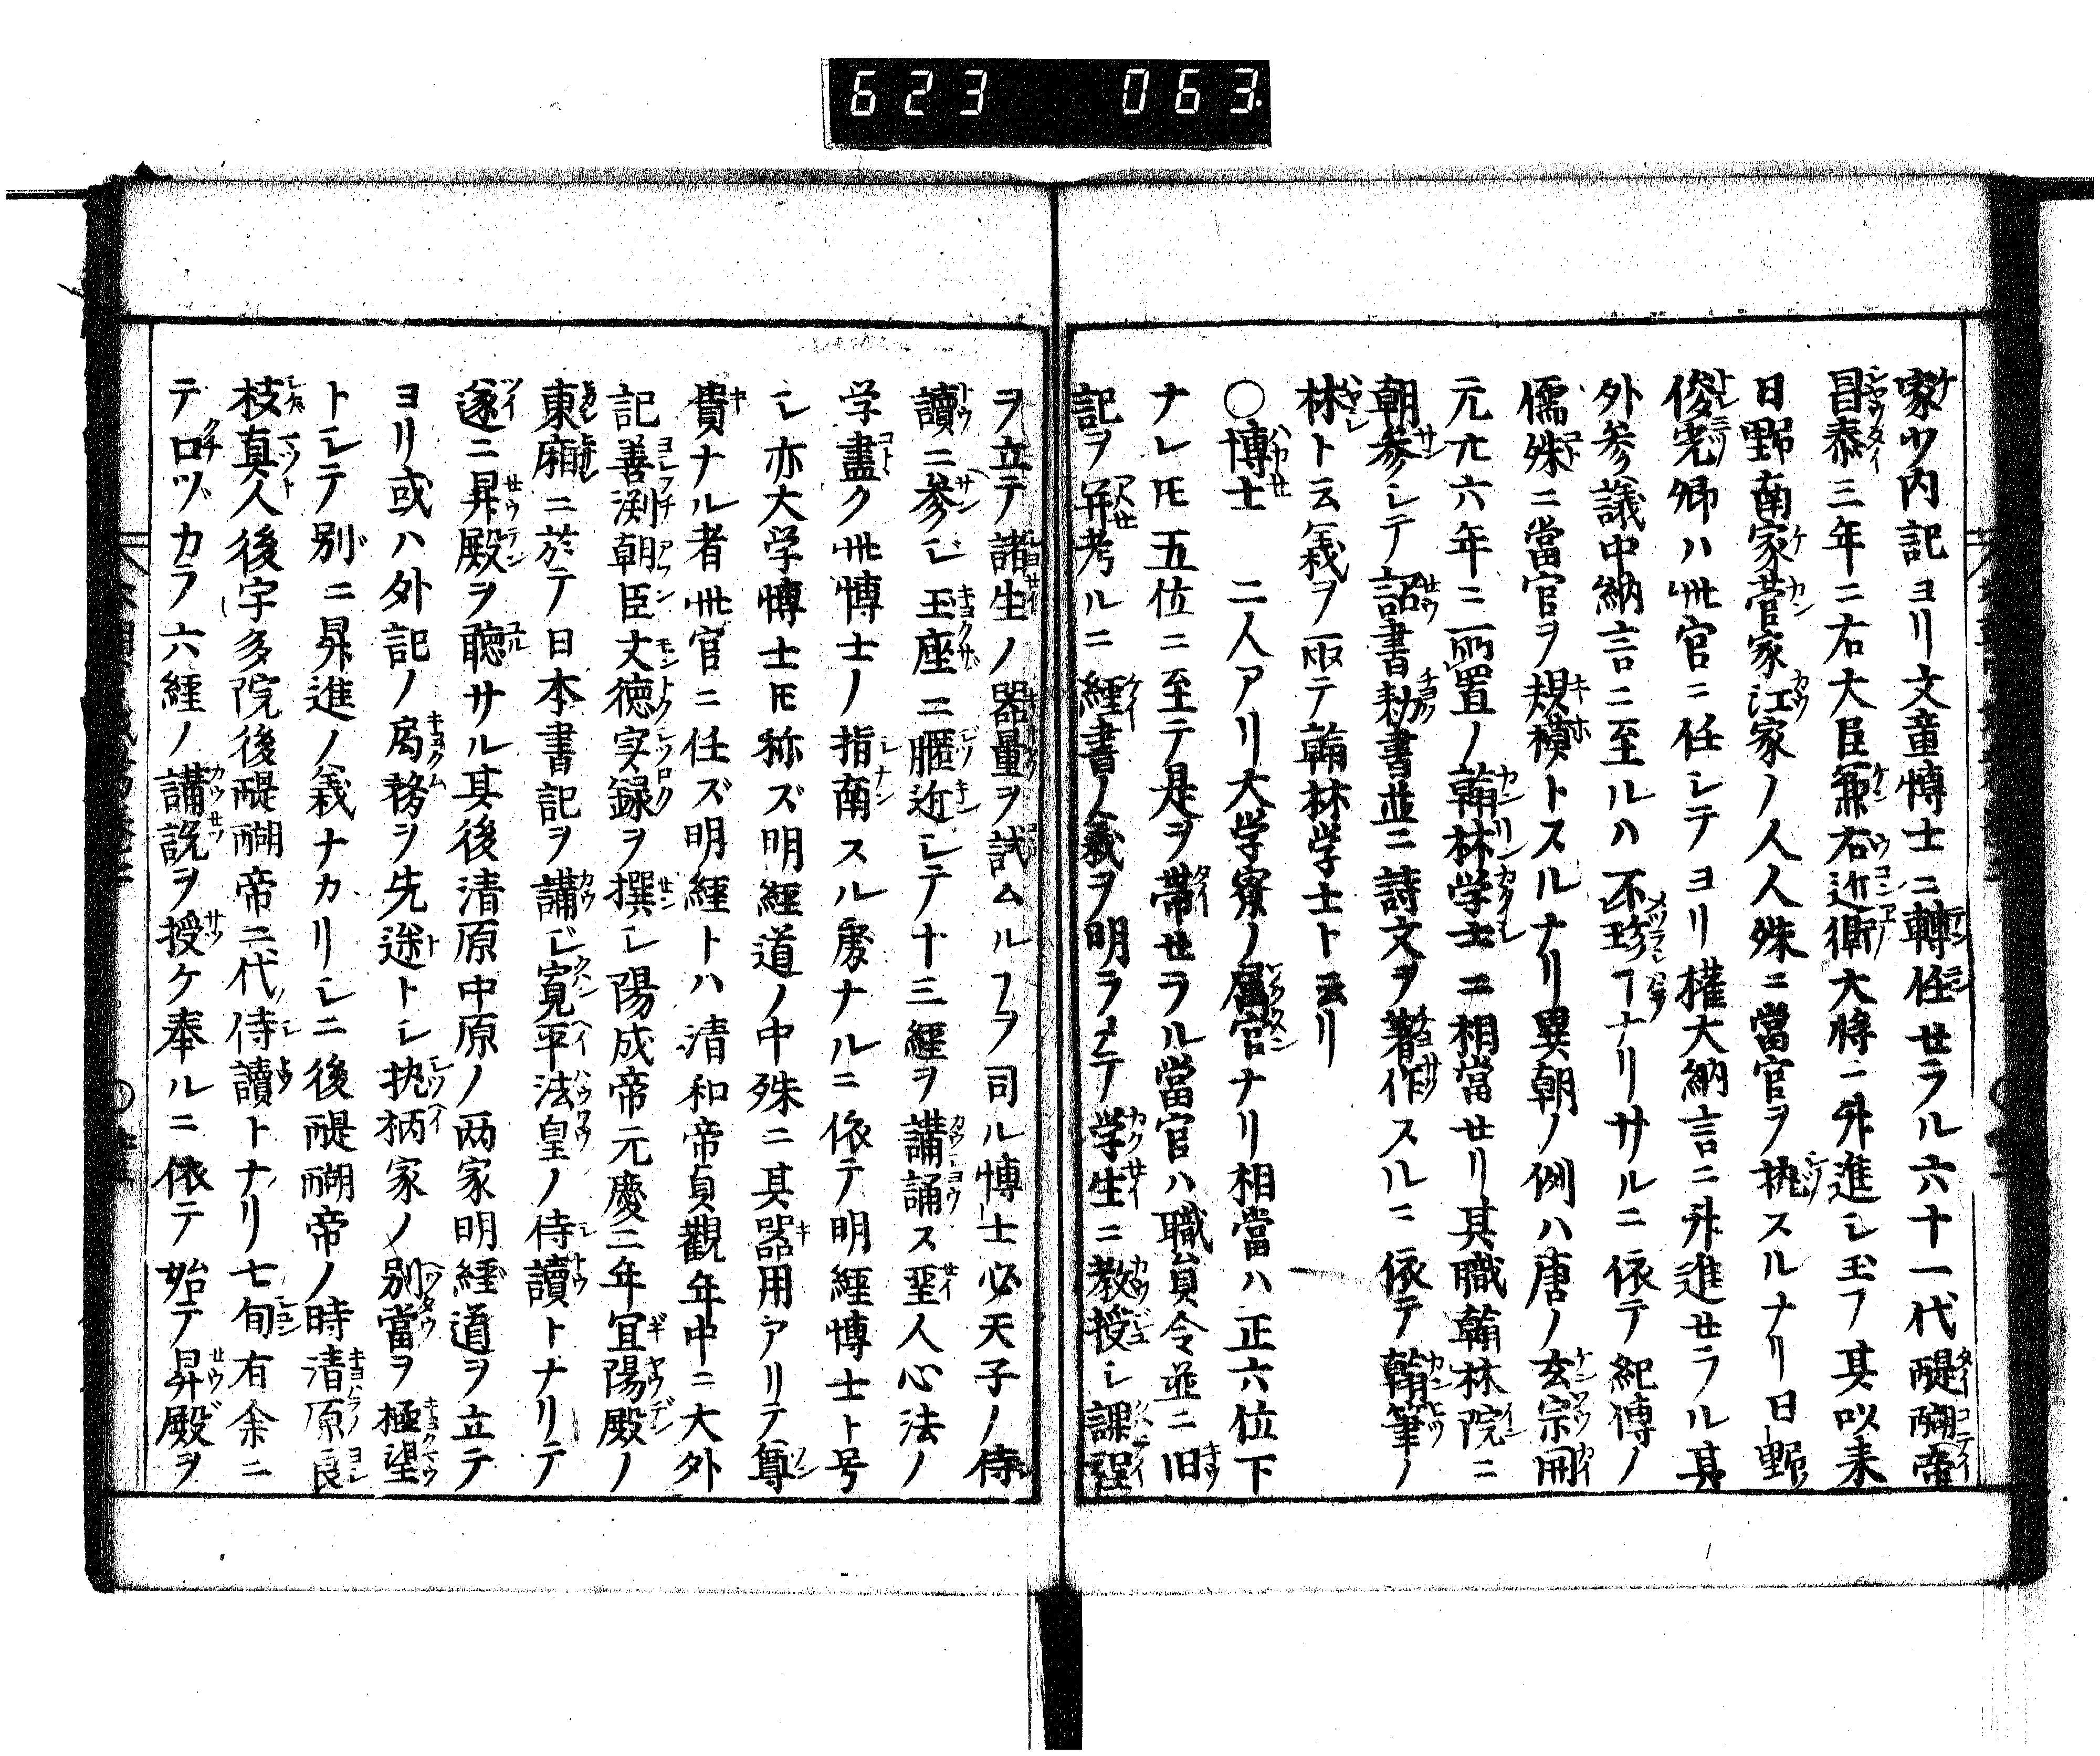 623 063
家少内記ヨリ文章博士ニ轉任セラル六十一代醍醐帝
昌泰三年ニ右大臣兼右近衛大将ニ舛進シ玉フ其以来
日野南家菅家江家ノ人人殊ニ當官ヲ執スルナリ日野
俊光卿ハ此官ニ任シテヨリ權大納言ニ舛進セラル其
外参議中納言ニ至ルハ不珍ヿナリサルニ依テ紀傳ノ
儒殊ニ當官ヲ規模トスルナリ異朝ノ例ハ唐ノ玄宗開
元廿六年ニ所置ノ翰林学士ニ相當セリ其職翰林院ニ
朝参シテ詔書勅書並ニ詩文ヲ著作スルニ依テ翰筆ノ
林ト云義ヲ取テ翰林学士ト云リ
○博士 二人アリ大学寮ノ屬官ナリ相當ハ正六位下
ナレ𪜈五位ニ至テ是ヲ帯セラル當官ハ職員令並ニ旧
記ヲ并考ルニ經書ノ義ヲ明ラメテ学生ニ教授シ課程
ヲ立テ諸生ノ器量ヲ試ムルヿヲ司ル博士必天子ノ侍
讀ニ参ジ玉座ニ𮕩近シテ十三經ヲ講誦ス聖人心法ノ
学盡ク此博士ノ指南スル處ナルニ依テ明經博士ト号
シ亦大学博士𪜈称ズ明經道ノ中殊ニ其器用アリテ尊
貴ナル者此官ニ任ズ明經トハ清和帝貞觀年中ニ大外
記善渕朝臣文徳実録ヲ撰シ陽成帝元慶三年宜陽殿ノ
東廂ニ於テ日本書記ヲ講ジ寛平法皇ノ侍讀トナリテ
遂ニ昇殿ヲ聴サル其後清原中原ノ两家明經道ヲ立テ
ヨリ或ハ外記ノ局務ヲ先途トシ执柄家ノ別當ヲ極望
トシテ別ニ昇進ノ義ナカリシニ後醍醐帝ノ時清原良
枝真人後宇多院後醍醐帝二代侍讀トナリ七旬有余ニ
テ口ヅカラ六經ノ講説ヲ授ケ奉ルニ依テ始テ昇殿ヲ